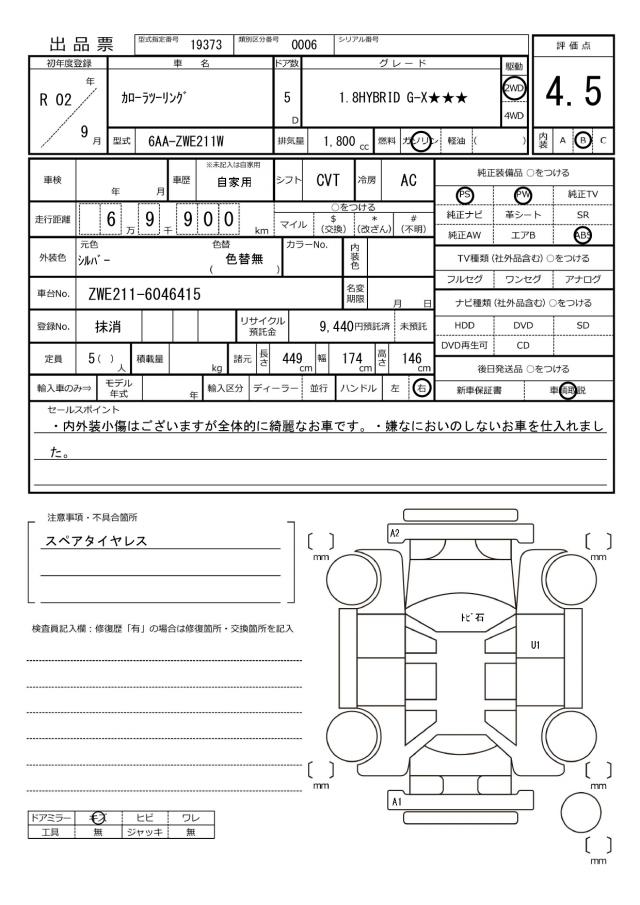 出品票
型式指定番号 19373 類別区分番号 0006 シリアル番号
評価点
4.5
内装 A B C
初年度登録 車名 ドア数 グレード 駆動
R 02 年 9 月
カローラツーリング 5 D 1.8HYBRID G-X★★★ 2WD 4WD
型式 6AA-ZWE211W 排気量 1,800 cc 燃料 ガソリン 軽油 ( )
車検 年 月 車歴 ※未記入は自家用 自家用 シフト CVT 冷房 AC
走行距離 6 万 9 千 9 0 0 km
○をつける
マイル $(交換) *(改ざん) #(不明)
外装色 元色 シルバー 色替 ( 色替無 ) カラーNo. 内装色
車台No. ZWE211-6046415 名変期限 月 日
登録No. 抹消 リサイクル預託金 9,440円預託済 未預託
定員 5( )人 積載量 kg 諸元 長さ 449cm 幅 174cm 高さ 146cm
輸入車のみ⇒ モデル年式 年 輸入区分 ディーラー 並行 ハンドル 左 右
純正装備品 ○をつける
PS PW 純正TV
純正ナビ 革シート SR
純正AW エアB ABS
TV種類(社外品含む)○をつける
フルセグ ワンセグ アナログ
ナビ種類(社外品含む)○をつける
HDD DVD SD
DVD再生可 CD
後日発送品 ○をつける
新車保証書 車輌取説
セールスポイント
・内外装小傷はございますが全体的に綺麗なお車です。・嫌なにおいのしないお車を仕入れまし
た。
注意事項・不具合箇所
スペアタイヤレス
検査員記入欄:修復歴「有」の場合は修復箇所・交換箇所を記入
ドアミラー キズ ヒビ ワレ
工具 無 ジャッキ 無
A2
mm
mm
トビ石
U1
mm
mm
A1
mm